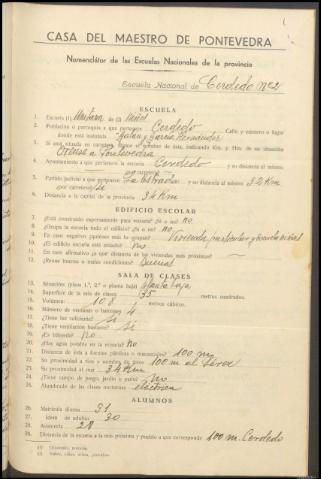 CASA DEL MAESTRO DE PONTEVEDRA
Nomenclátor de las Escuelas Nacionales de la provincia
Escuela Nacional de Cerdedo Nº 2
ESCUELA
1. Escuela (1) Unitaria de (2) Niños
2. Población o parroquia a que pertenece Cerdedo Calle y número o lugar
donde está instalada García Hernández
3. Si está situada en carretera, Km. y Hm. de su situación
Orense a Pontevedra
4. Ayuntamiento a que pertenece la escuela Cerdedo y su distancia al mismo,
5. Partido judicial a que pertenece La Estrada y su distancia al mismo 32 Km
por carretera
6. Distancia a la capital de la provincia 34 Km
EDIFICIO ESCOLAR
7. ¿Está construído expresamente para escuela? ¿Sí o no? no
8. ¿Ocupa la escuela todo el edificio? ¿Sí o no? no
9. En caso negativo ¿quiénes más lo ocupan? Vivienda particular y escuela niñas
10. ¿El edificio escuela está aislado? no
11. En caso afirmativo ¿a qué distancia de las viviendas más próximas?
12. ¿Reune buenas o malas condiciones? Buenas
SALA DE CLASES
13. Situación (pisos 1.º, 2.º o planta baja) planta baja
14. Superficie de la sala de clases 35 metros cuadrados.
15. Volumen: 108 metros cúbicos.
16. Número de ventanas o balcones 4
17. ¿Tiene luz suficiente? si
18. ¿Tiene ventilación bastante? si
19. ¿Es húmeda? no
20. ¿Hay agua potable en la escuela? no
21. Distancia de ésta a fuentes públicas o manantiales 100 m
22. Su proximidad a ríos o nombre de éstos 100 m al Lérez
23. Su proximidad al mar 34 Km
24. ¿Tiene campo de juego, jardín o patio? no
25. Alumbrado de las clases nocturnas eléctrica
ALUMNOS
26. Matrícula diurna 31
27. idem de adultos 30
28. Asistencia 28
29. Distancia de la escuela a la más próxima y pueblo a que corresponde 100 m. Cerdedo
(1) Unitaria, mixta
(2) Niños, niñas, mixta, párvulos.